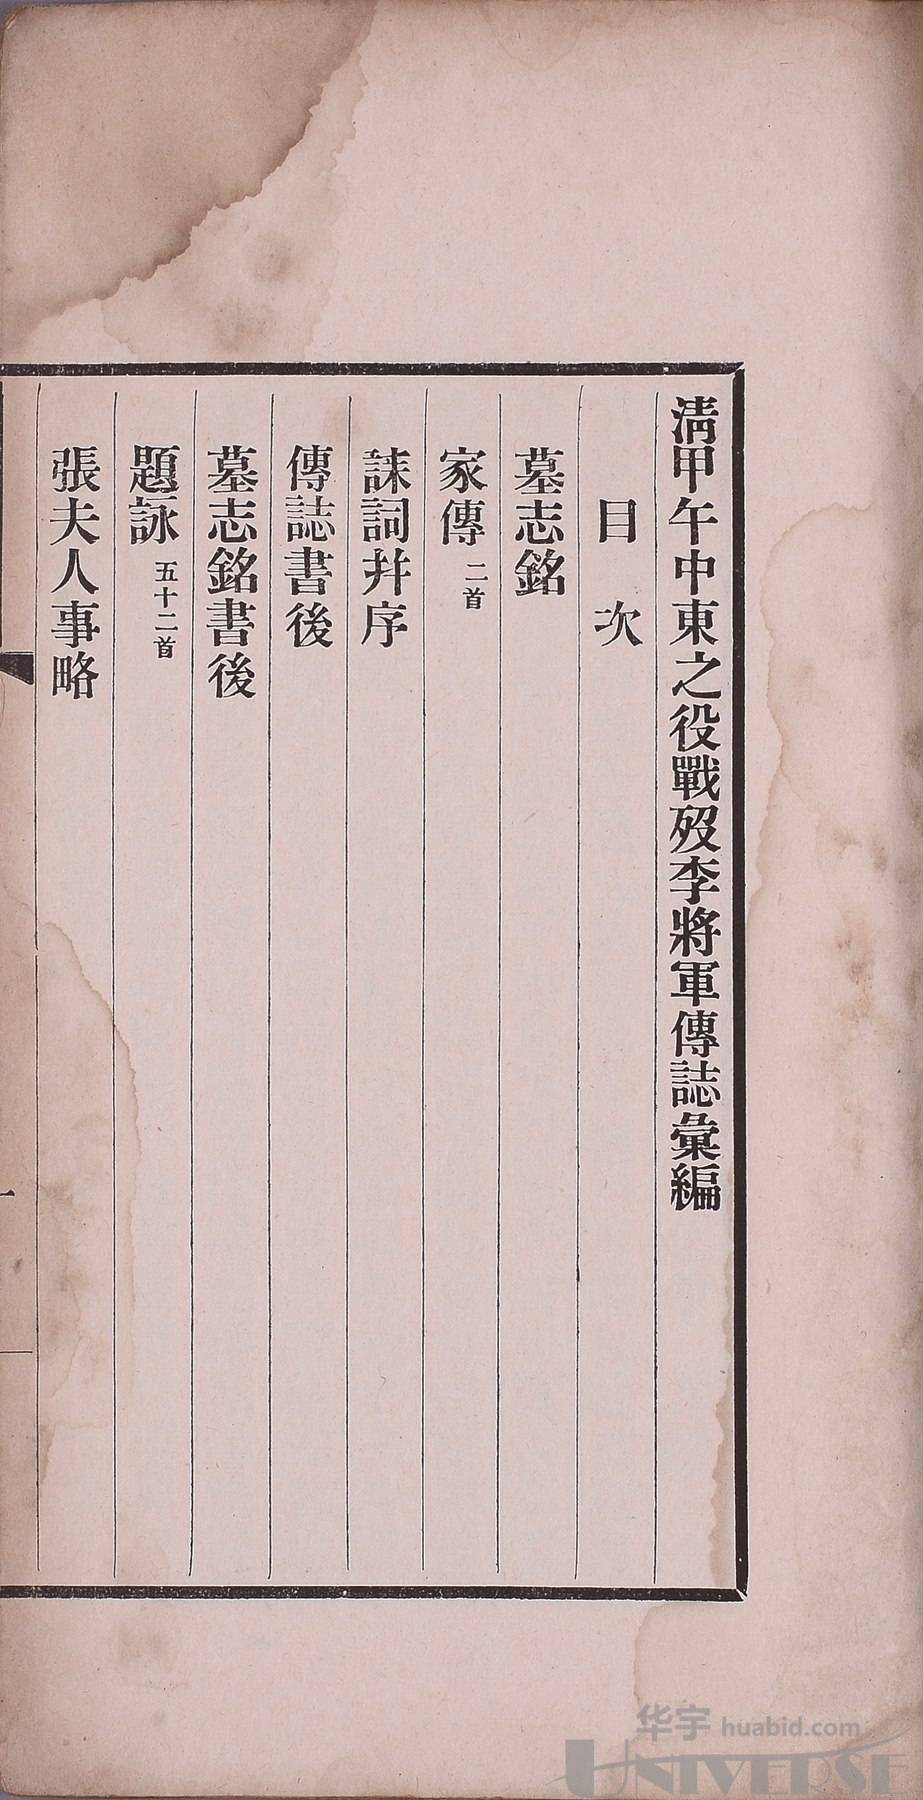 淸甲午中東之役戰歿李將軍傳誌彙編
目次
墓志銘
家傳 二首
誄詞幷序
傳誌書後
墓志銘書後
題詠 五十二首
張夫人事略
一
华宇 huabid.com
UNIVERSE